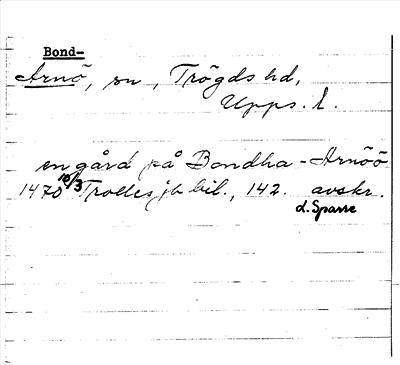 Bond-
Arnö, sn, Trögds hd,
Upps. l.
en gård på Bondha-Arnöö
1470 10/3 Trolles jb bil., 142. avskr.
d. Sparre